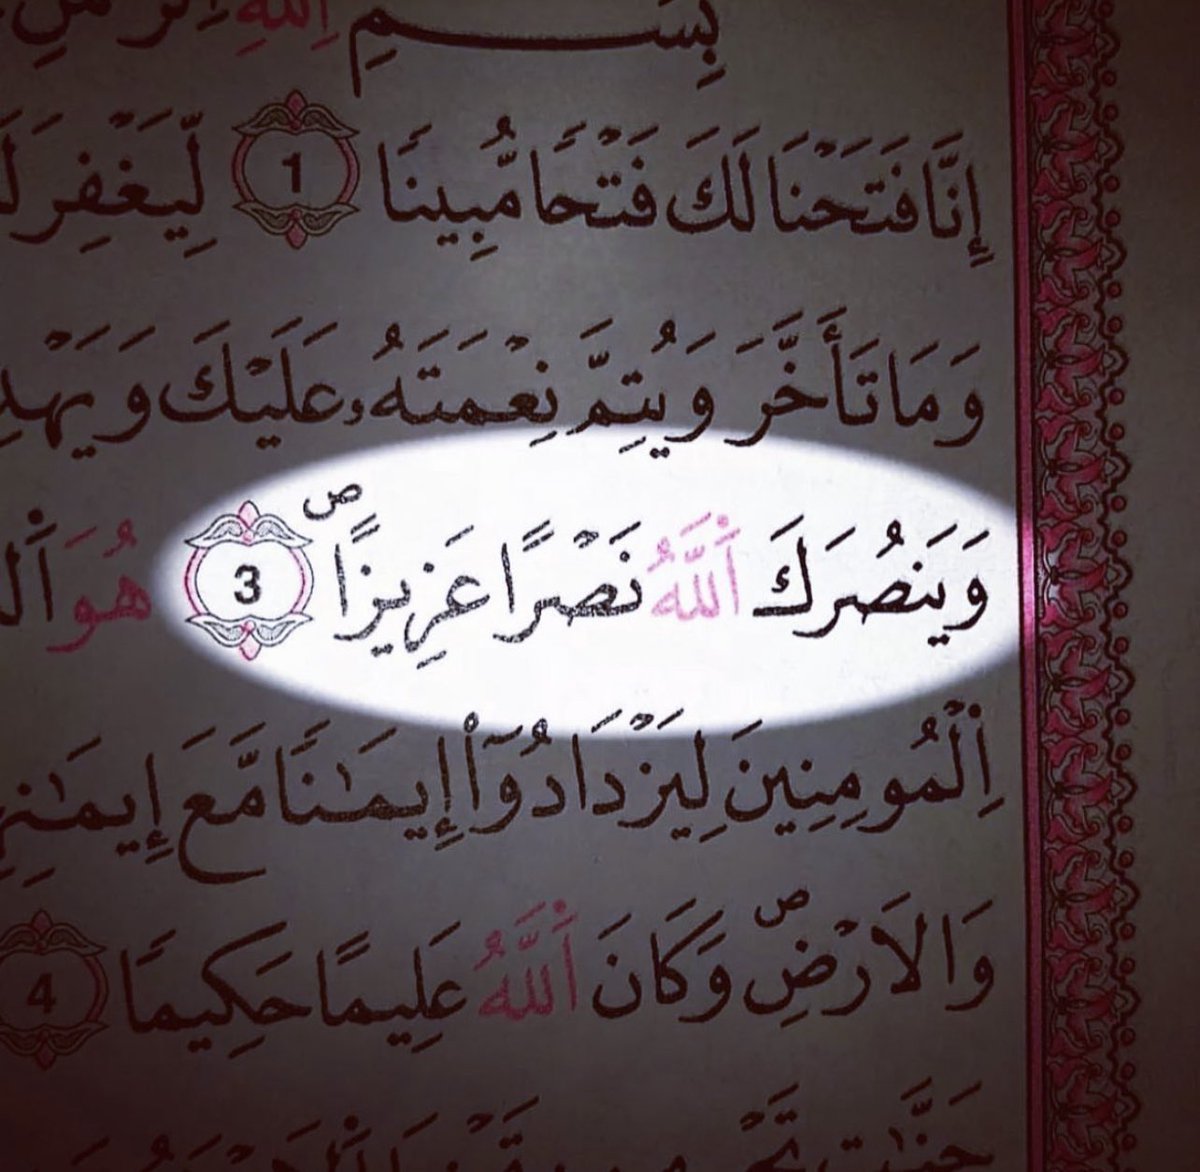 بِسْمِ اِللَّهِ
إِنَّا فَتَحْنَا لَكَ فَتْحًا مُّبِينًا 1 لِّيَغْفِرَ
وَمَا تَأَخَّرَ وَيُتِمَّ نِعْمَتَهُۥ عَلَيْكَ وَيَهْدِ
وَيَنصُرَكَ اَللَّهُ نَصْرًا عَزِيزًاۖ 3 هُوَ
اِلْمُومِنِينَ لِيَزْدَادُوٓاْ إِيمَٰنًا مَّعَ إِيمَٰنِهِ
وَالَارْضِۖ وَكَانَ اَللَّهُ عَلِيمًا حَكِيمًا 4
جَنَّٰتٍ تَجْرِے